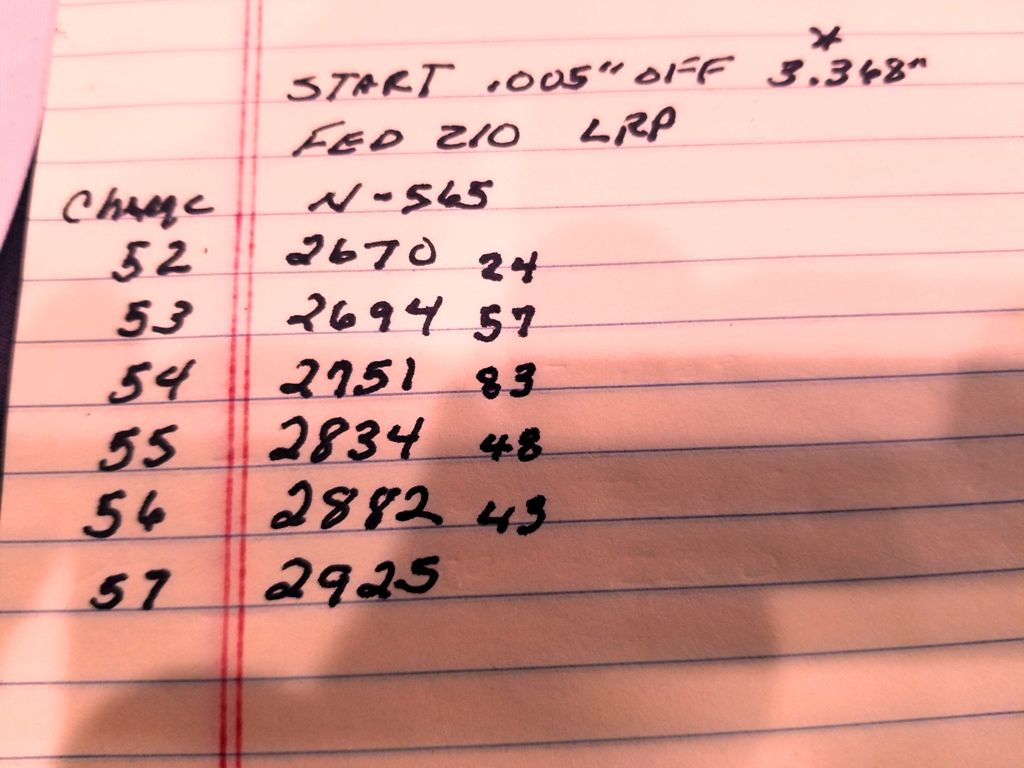 *
START .005" OFF 3.368"
FED 210 LRP
Charge N-565
52 2670 24
53 2694 57
54 2751 83
55 2834 48
56 2882 43
57 2925